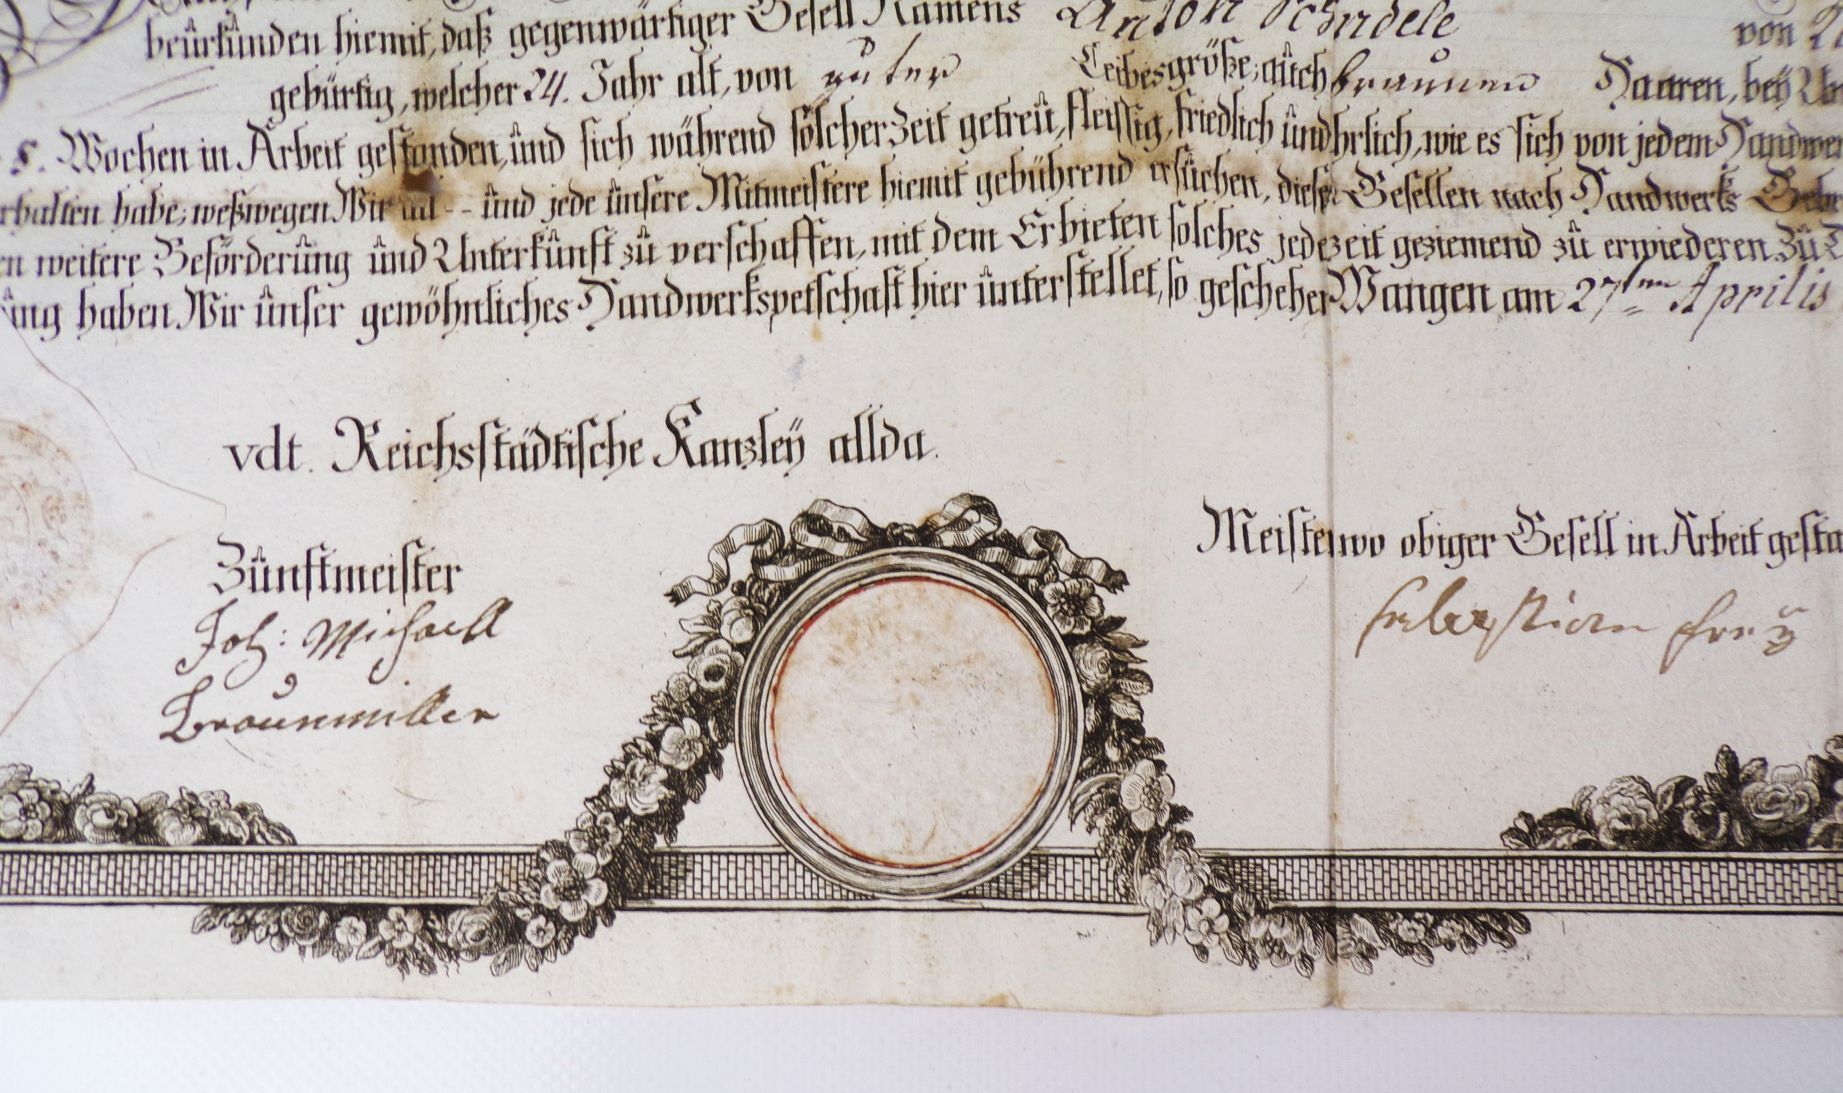 beürkünden hiemit, daß gegenwärtiger Gesell Namens Anton Schidele von
gebürtig, welcher 24. Jahr alt, von guter Leibesgröße, aüch braunen Haaren, beÿ Un
8. Wochen in Arbeit gestanden, ünd sich während solcher Zeit getreü, fleissig, friedlich ünd hrlich, wie es sich von jedem Handwer
rhalten habe; weßwegen Wir all -- ünd jede ünsere Mitmeistere hiemit gebührend ersüchen, diesen Gesellen nach Handwerks Gebr
en weitere Beförderüng ünd Unterkünft zü verschaffen, mit dem Erbieten solches jederzeit geziemend zü erwiederen. Zü
üng haben Wir ünser gewöhnliches Handwerkspetschaft hier ünterstellet, so geschehen Wangen am 27ten Aprilis
vdt. Reichsstädtische Kanzleÿ allda.
Meister wo obiger Gesell in Arbeit gesta
Zünftmeister
Joh: Michaell
Braunmiller
Sebastian Freÿ